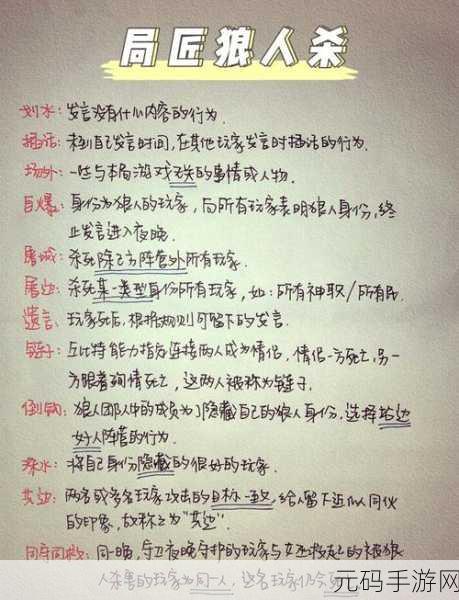 局匠狼人杀
划水：发言没有什么内容的行为.
插话：未到自己发言时间，在其他玩家发言时插话的行为.
场外：一些与本局游戏无关的事情或人物.
自爆：身份为狼人的玩家，向所有玩家表明狼人身份，终
止发言进入夜晚.
屠城：杀死除己方阵营外所有玩家.
屠边：杀死某一类型身份所有玩家，如：所有神职/所有民.
遗言：玩家死后，根据规则可留下的发言.
链子：丘比特能力指定连接两人成为情侣，情侣一方死亡，另一
方跟着殉情死亡，这两人被称为链子.
倒钩：狼人团队中的成员为了隐藏自己的狼人身份，选择站边
好人阵营的行为.
深水：将自己身份隐藏的很好的玩家.
共边：两名或多名玩家攻击的目标一致，给人留下近似同伙
的印象，故称之为"共边".
同守同救：同一晚，守卫夜晚守护的玩家与女巫救起的被狼
人杀害的玩家为同一人，这名玩家仍会
元码手游网